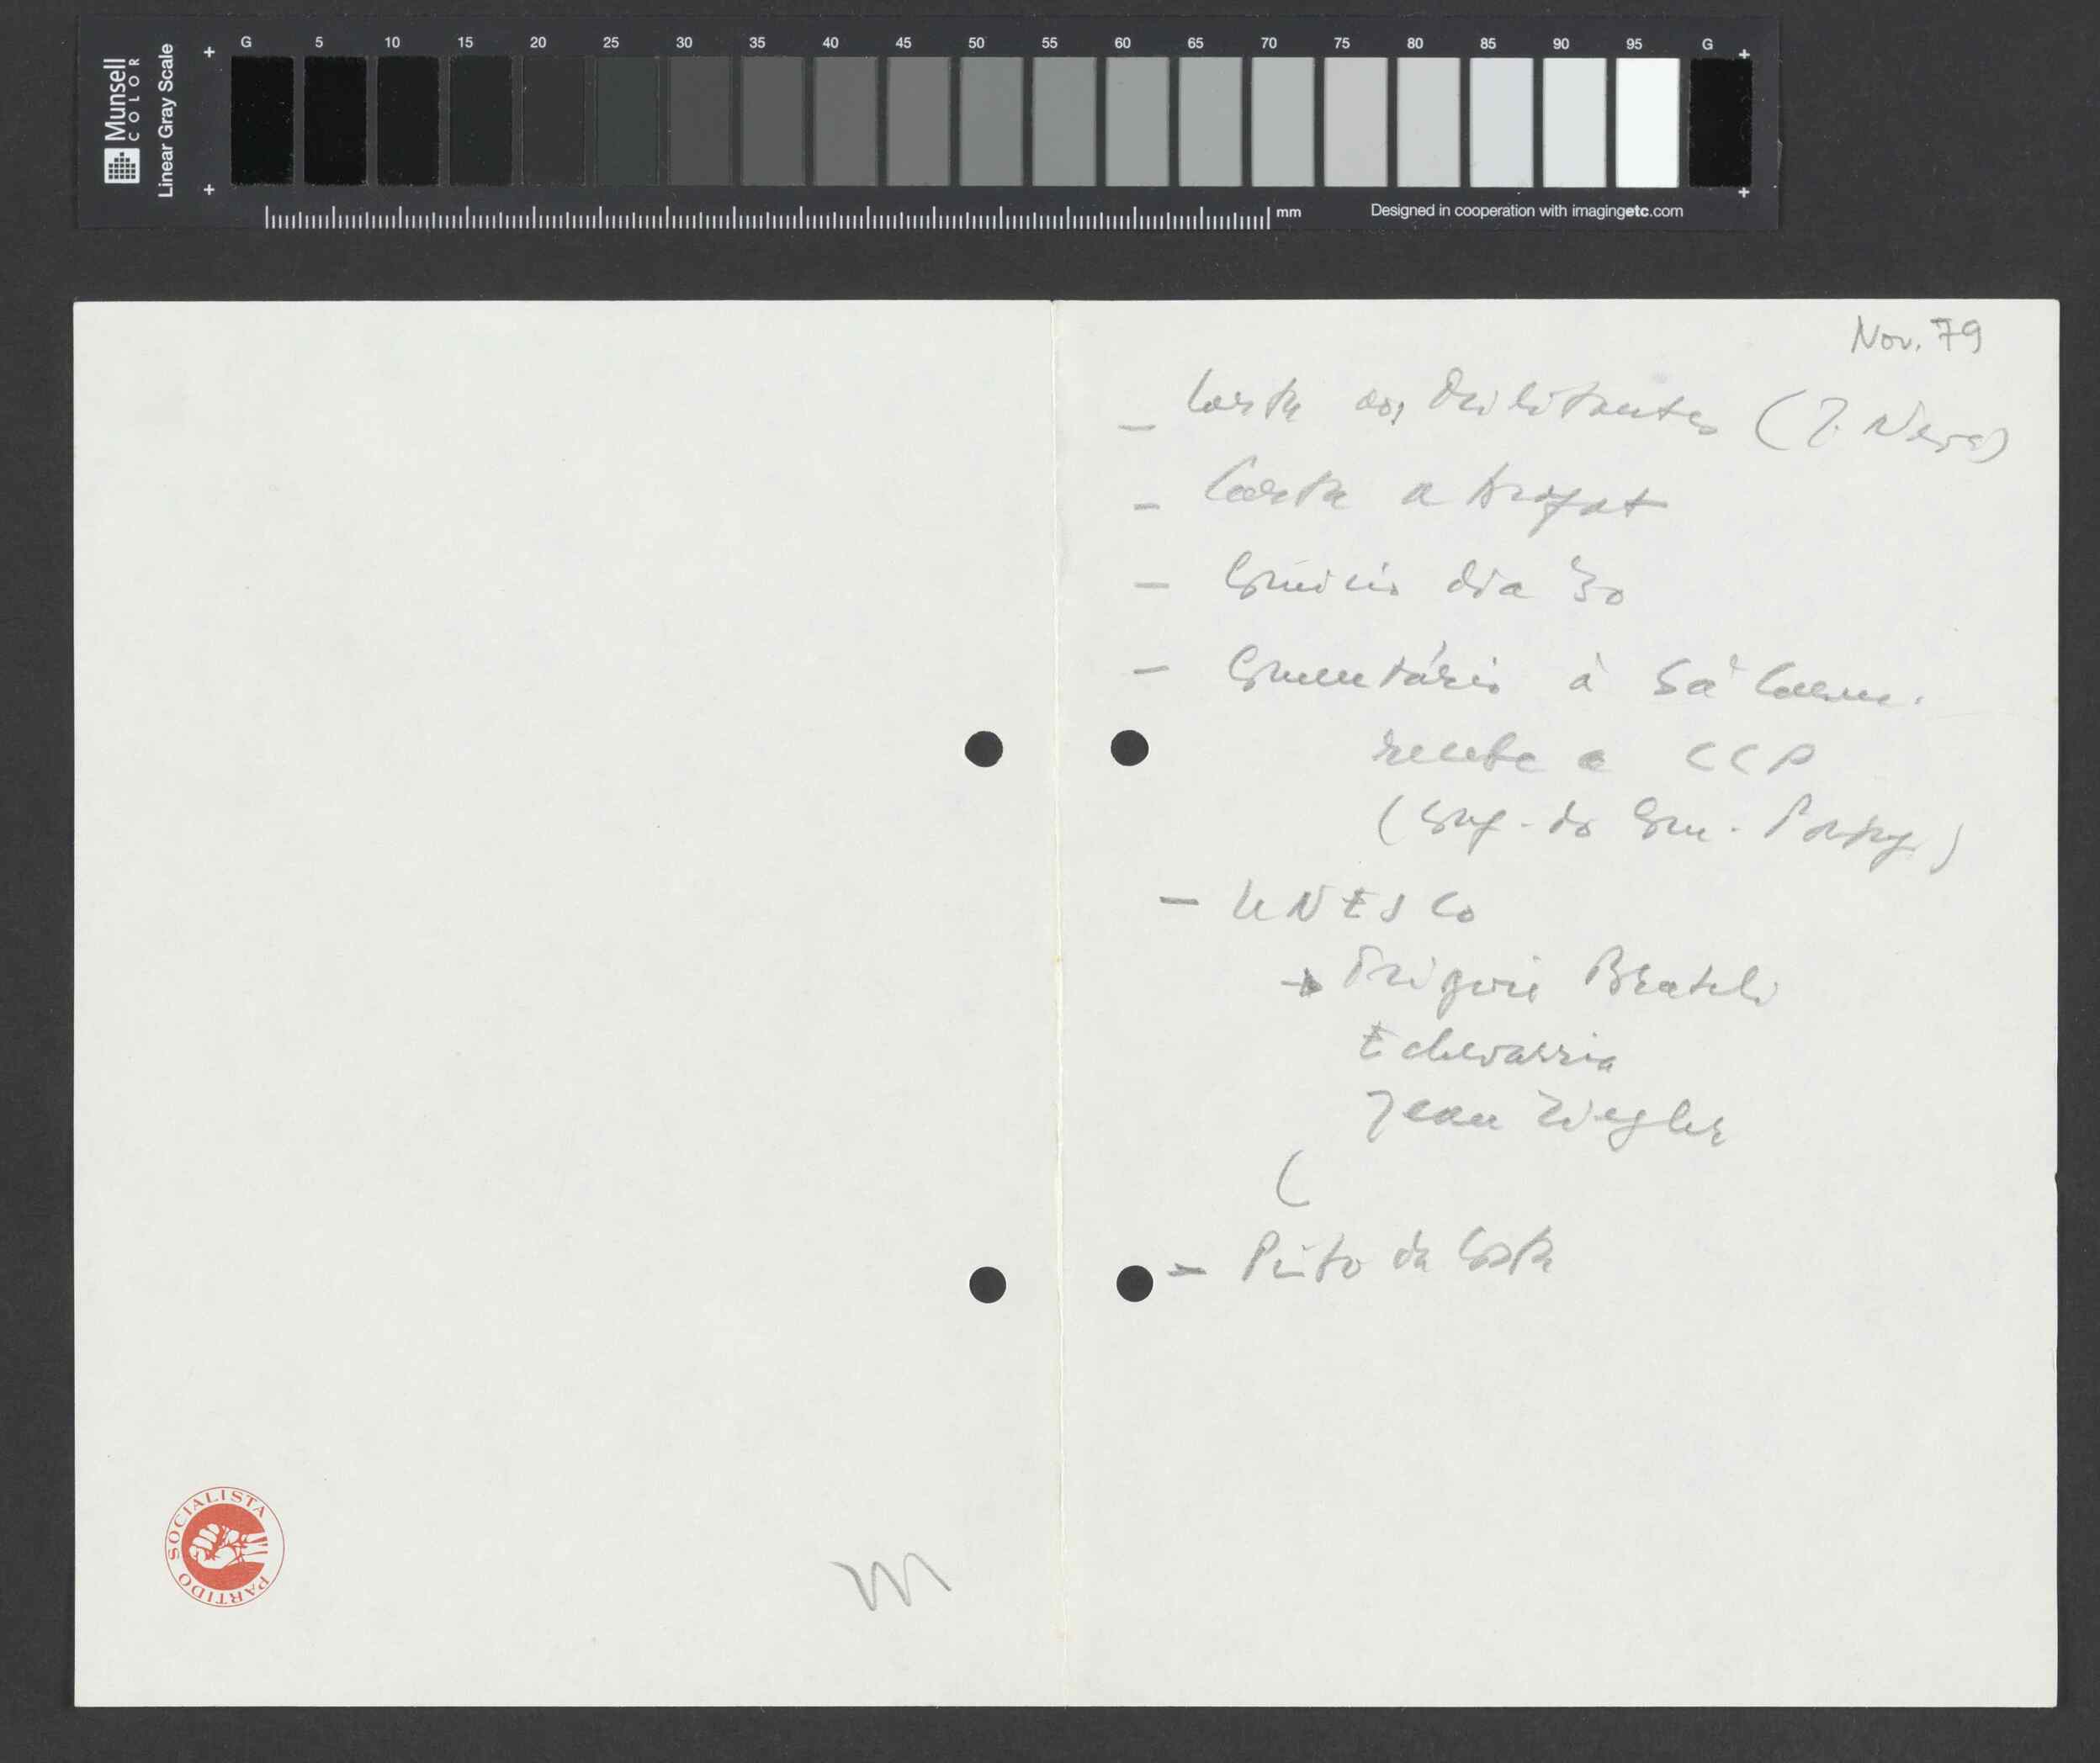 Munsell
COLOR
Linear Gray Scale
G 5 10 15 20 25 30 35 40 45 50 55 60 65 70 75 80 85 90 95 G
mm
Designed in cooperation with imagingetc.com
Nov. 79
– Carta aos Militantes (J. Neves)
– Carta a Arafat
– Comício dia 30
– Comentário à Sá Carn.
recebe a CCP
(Conf. do Com. Portug.)
– UNESCO
→ Bratteli
Echevarria
Jean Ziegler
(
– Pinto da Costa
PARTIDO SOCIALISTA